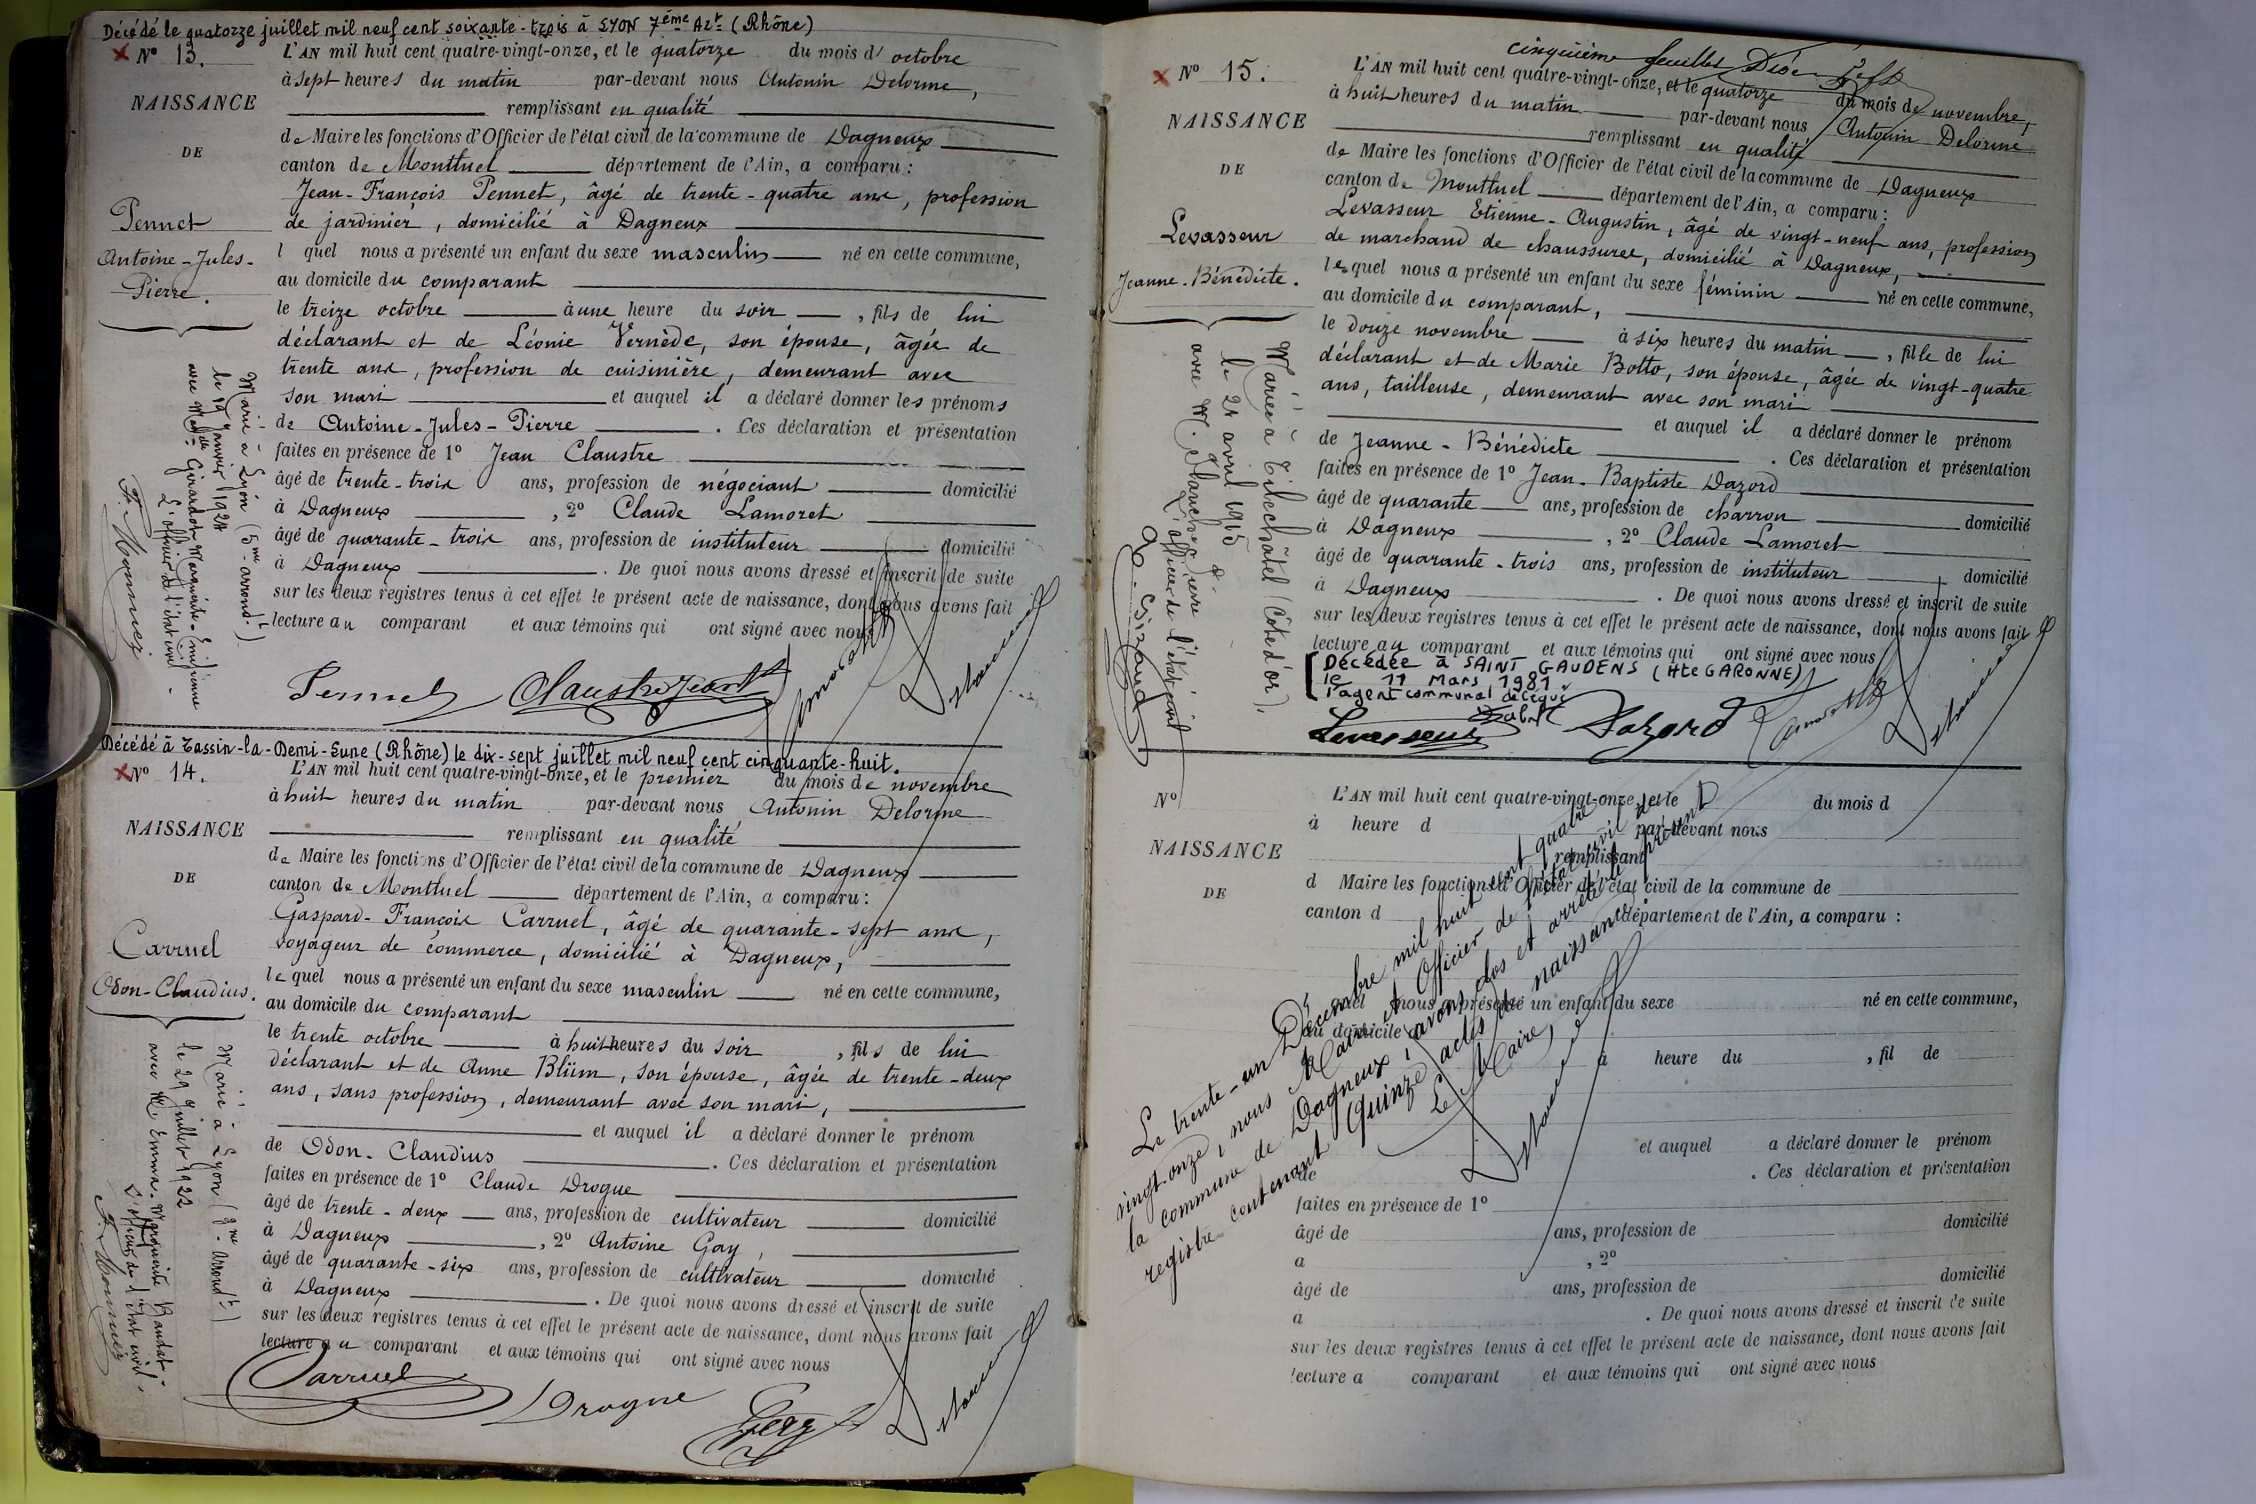 Décédé le quatorze juillet mil neuf cent soixante-trois à LYON 7ème Art (Rhône)
N° 13.
NAISSANCE
DE
Pennet
Antoine-Jules-
Pierre.
Marié à Lyon (5me arrond.t)
le 19 janvier 1924
avec Melle Girardot Marguerite-Emilienne
L'officier de l'état civil.
L'AN mil huit cent quatre-vingt-onze, et le quatorze du mois d'octobre
à sept heures du matin par-devant nous Antonin Delorme,
remplissant en qualité
de Maire les fonctions d'Officier de l'état civil de la commune de Dagneux
canton de Montluel département de l'Ain, a comparu :
Jean-François Pennet, âgé de trente-quatre ans, profession
de jardinier, domicilié à Dagneux
l quel nous a présenté un enfant du sexe masculin né en cette commune,
au domicile du comparant
le treize octobre à une heure du soir, fils de lui
déclarant et de Léonie Vernède, son épouse, âgée de
trente ans, profession de cuisinière, demeurant avec
son mari et auquel il a déclaré donner les prénoms
de Antoine-Jules-Pierre. Ces déclaration et présentation
faites en présence de 1° Jean Claustre
âgé de trente-trois ans, profession de négociant domicilié
à Dagneux, 2° Claude Lamoret
âgé de quarante-trois ans, profession de instituteur domicilié
à Dagneux. De quoi nous avons dressé et inscrit de suite
sur les deux registres tenus à cet effet le présent acte de naissance, dont nous avons fait
lecture au comparant et aux témoins qui ont signé avec nous
Pennet Claustre Jean Lamoret
Décédé à Tassin-la-Demi-Lune (Rhône) le dix-sept juillet mil neuf cent cinquante-huit.
N° 14.
NAISSANCE
DE
Carruel
Odon-Claudius.
Marié à Lyon
le 29 juillet 1922
avec Mlle Emma-Marguerite
L'officier de l'état civil.
L'AN mil huit cent quatre-vingt-onze, et le premier du mois de novembre
à huit heures du matin par-devant nous Antonin Delorme
remplissant en qualité
de Maire les fonctions d'Officier de l'état civil de la commune de Dagneux
canton de Montluel département de l'Ain, a comparu :
Gaspard-François Carruel, âgé de quarante-sept ans,
voyageur de commerce, domicilié à Dagneux,
lequel nous a présenté un enfant du sexe masculin né en cette commune,
au domicile du comparant
le trente octobre à huit heures du soir, fils de lui
déclarant et de Anne Blüm, son épouse, âgée de trente-deux
ans, sans profession, demeurant avec son mari,
et auquel il a déclaré donner le prénom
de Odon-Claudius. Ces déclaration et présentation
faites en présence de 1° Claude Drogue
âgé de trente-deux ans, profession de cultivateur domicilié
à Dagneux, 2° Antoine Gay,
âgé de quarante-six ans, profession de cultivateur domicilié
à Dagneux. De quoi nous avons dressé et inscrit de suite
sur les deux registres tenus à cet effet le présent acte de naissance, dont nous avons fait
lecture au comparant et aux témoins qui ont signé avec nous
Carruel Drogue
cinquième feuillet
N° 15.
NAISSANCE
DE
Levasseur
Jeanne-Bénédicte.
Mariée à Tilchâtel (Côte d'or),
le 21 avril 1915
L'officier de l'état civil
L'AN mil huit cent quatre-vingt-onze, et le quatorze du mois de novembre,
à huit heures du matin par-devant nous Antonin Delorme
remplissant en qualité
de Maire les fonctions d'Officier de l'état civil de la commune de Dagneux
canton de Montluel département de l'Ain, a comparu :
Levasseur Etienne-Augustin, âgé de vingt-neuf ans, profession
de marchand de chaussures, domicilié à Dagneux,
lequel nous a présenté un enfant du sexe féminin né en cette commune,
au domicile du comparant,
le douze novembre à six heures du matin, fille de lui
déclarant et de Marie Botto, son épouse, âgée de vingt-quatre
ans, tailleuse, demeurant avec son mari
et auquel il a déclaré donner le prénom
de Jeanne-Bénédicte. Ces déclaration et présentation
faites en présence de 1° Jean-Baptiste Dazord
âgé de quarante ans, profession de charron domicilié
à Dagneux, 2° Claude Lamoret
âgé de quarante-trois ans, profession de instituteur domicilié
à Dagneux. De quoi nous avons dressé et inscrit de suite
sur les deux registres tenus à cet effet le présent acte de naissance, dont nous avons fait
lecture au comparant et aux témoins qui ont signé avec nous
Décédée à SAINT GAUDENS (Hte GARONNE)
le 11 Mars 1981
l'agent communal délégué
Levasseur Dazord Lamoret
N°
NAISSANCE
DE
L'AN mil huit cent quatre-vingt-onze, et le du mois d
à heure d par-devant nous
remplissant
d Maire les fonctions d'Officier de l'état civil de la commune de
canton d département de l'Ain, a comparu :
lequel nous a présenté un enfant du sexe né en cette commune,
au domicile d
à heure du , fil de
et auquel a déclaré donner le prénom
de . Ces déclaration et présentation
faites en présence de 1°
âgé de ans, profession de domicilié
a , 2°
âgé de ans, profession de domicilié
a . De quoi nous avons dressé et inscrit de suite
sur les deux registres tenus à cet effet le présent acte de naissance, dont nous avons fait
lecture a comparant et aux témoins qui ont signé avec nous
Le trente-un Décembre mil huit cent quatre
vingt-onze, nous Maire et Officier de l'état civil de
la commune de Dagneux, avons clos et arrêté le présent
registre contenant Quinze actes de naissance.
Le Maire,